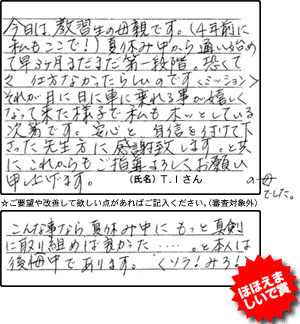 今日は、教習生の母親です。(4年前に
私もここで!)夏休み中から通い始め
て早3ヶ月まだまだ第一段階。恐くて
仕方なかったらしいのです<ミッション>
それが日に日に車に乗れる事が嬉しく
なって来た様子で私もホッとしている
次第です。安心と自信を付けて下
さった先生方に感謝致します。と共
にこれからもご指導よろしくお願い
申し上げます。
(氏名) T.Iさん
の母
でした。
☆ご要望や改善して欲しい点があればご記入ください。(審査対象外)
こんな事なら夏休中にもっと真剣
に取り組めば良かった……。と本人は
後悔中であります。
<ソラ!みろ!>
ほほえま
しいで賞